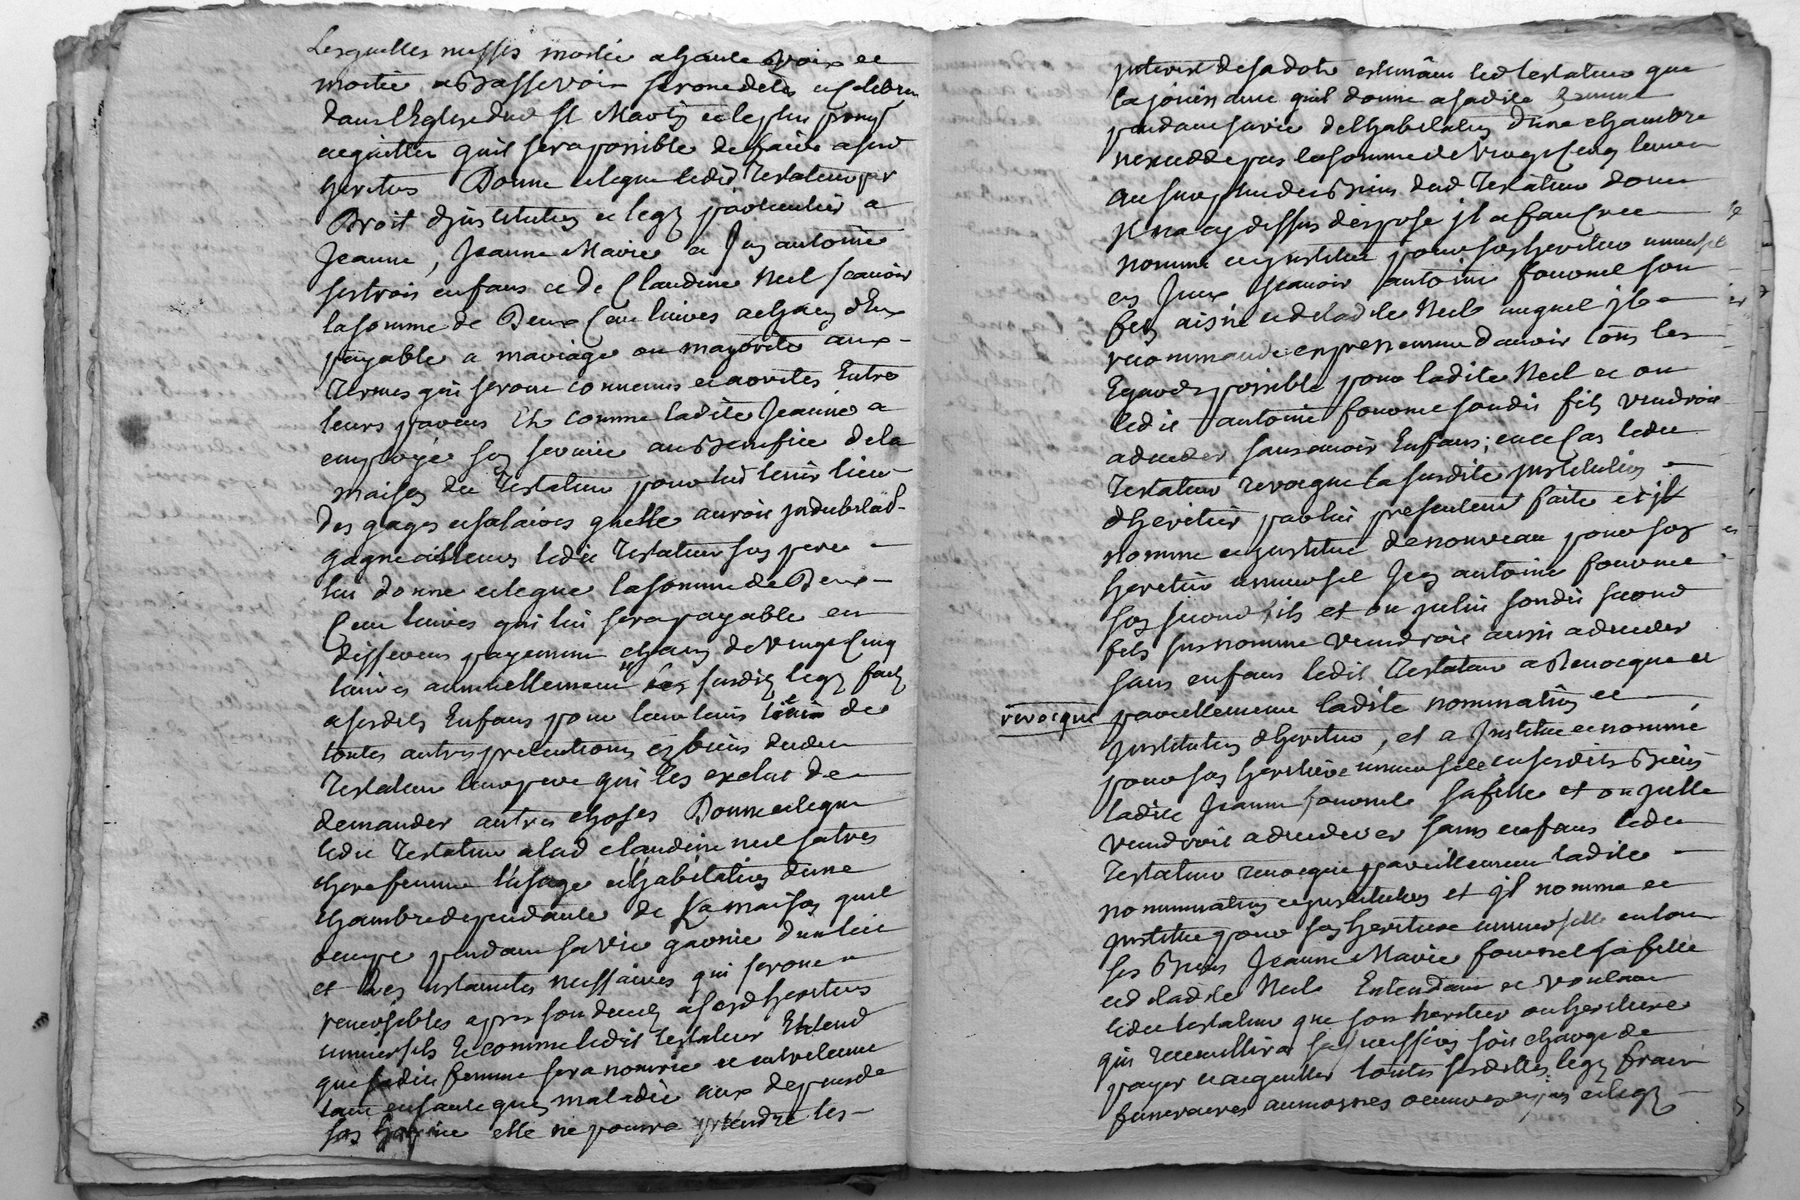 Lesquelles messes moitié a haute voix et
moitié a Basse voix seront dites et celebrées
dans l'Eglise dud St Martin et le plus promp
acquitter quil sera possible de faire a sesd
heritiers Donne et legue ledit Testateur par
Droit d'institution et legz particulier a
Jeanne, Jeanne Marie et Jean antoine
ses trois enfans et de Claudine Neel scavoir
la somme de Deux Cent livres a chacun d'Eux
payable a mariage ou majorité aux
Termes qui seront convenus et arretés Entre
leurs parens Et comme ladite Jeanne a
employé son service au Benefice de la
maison du Testateur pour lui tenir lieu
des gages et salaires quelle auroit indubitabl-
gagné ailleurs ledit Testateur son pere
lui donne et legue la somme de Deux
Cent livres qui lui sera payable en
differens payemens chacun de vingt Cinq
livres annuellement les susdits legz faits
a sesdits Enfans pour leur tenir lieu de
toutes autres pretentions es biens dudit
Testateur leur pere qui les exclut de
demander autres choses Donne et legue
ledit Testateur a lad Claudine neel sa tres
chere femme l'usage et habitation d'une
chambre dependante de sa maison quil
occupe pendant sa vie garnie d'un lit
et des ustanciles necessaires qui seront
reversibles apres son deces a sesd heritiers
universels Et comme ledit testateur Entend
que sadite femme sera nourrie et entretenue
tant en santé quen maladie aux depens de
son hoyrie elle ne pourra pretendre les
interest de sa dote estimant led testateur que
la jouissance quil donne a sadite femme
pendant sa vie de l'habitation d'une chambre
nexcedde pas la somme de vingt cinq livres
au surplus des Biens dud Testateur dont
il na cy dessus disposé il a fait cree
nommé et institué pour ses heritiers universels
en Iceux scavoir antoine fournel son
fils aisne et de ladite Neel auquel il
recommande expressement d'avoir tous les
Egards possible pour ladite Neel et ou
ledit antoine fournel sondit fils viendroit
a deceder sans avoir Enfans; en ce cas ledit
Testateur revocque la susdite institution
d'heritier par lui presentement faite et il
Nomme et institue de nouveau pour son
heritier universel Jean antoine fournel
son second fils et ou icelui sondit second
fils susnommé viendroit aussi a deceder
sans enfans ledit Testateur a Revocque et
revocque pareillement ladite nomination et
Institution d'heritier, et a Institué et nommé
pour son heritiere universelle en sesdits Biens
ladite Jeanne fournel sa fille et ou icelle
viendroit a deceder sans enfans ledit
Testateur revocque pareillement ladite
nomination et institution et il nomme et
Institue pour son heritiere universelle en tous
ses Biens Jeanne Marie fournel sa fille
et de ladite Neel Entendant et voulant
ledit testateur que son heritier ou heritiere
qui recueillira sa succession soit chargé de
payer et acquitter toutes sesdites legz frais
funeraires aumosnes oeuvres pies et legz